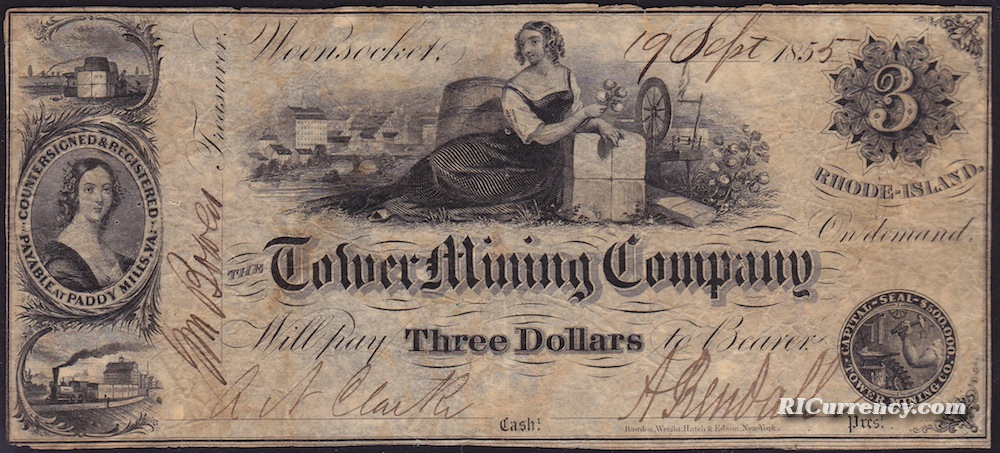 Woonsocket, 19 Sept 1855
3
RHODE-ISLAND.
On demand,
THE Tower Mining Company
Will pay Three Dollars to Bearer
COUNTERSIGNED & REGISTERED
PAYABLE AT PADDY MILLS, VA.
Treasurer.
CAPITAL-SEAL-$500,000.
TOWER MINING CO.
Clark
Cash!
Pres.
Rawdon, Wright, Hatch & Edson, New-York.
RICurrency.com